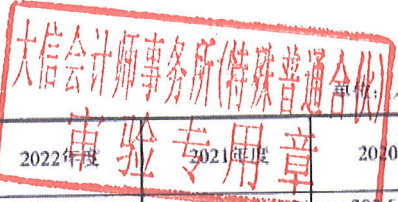 大信会计师事务所(特殊普通合伙)
单位:
审验专用章
2022年度 2021年度 2020